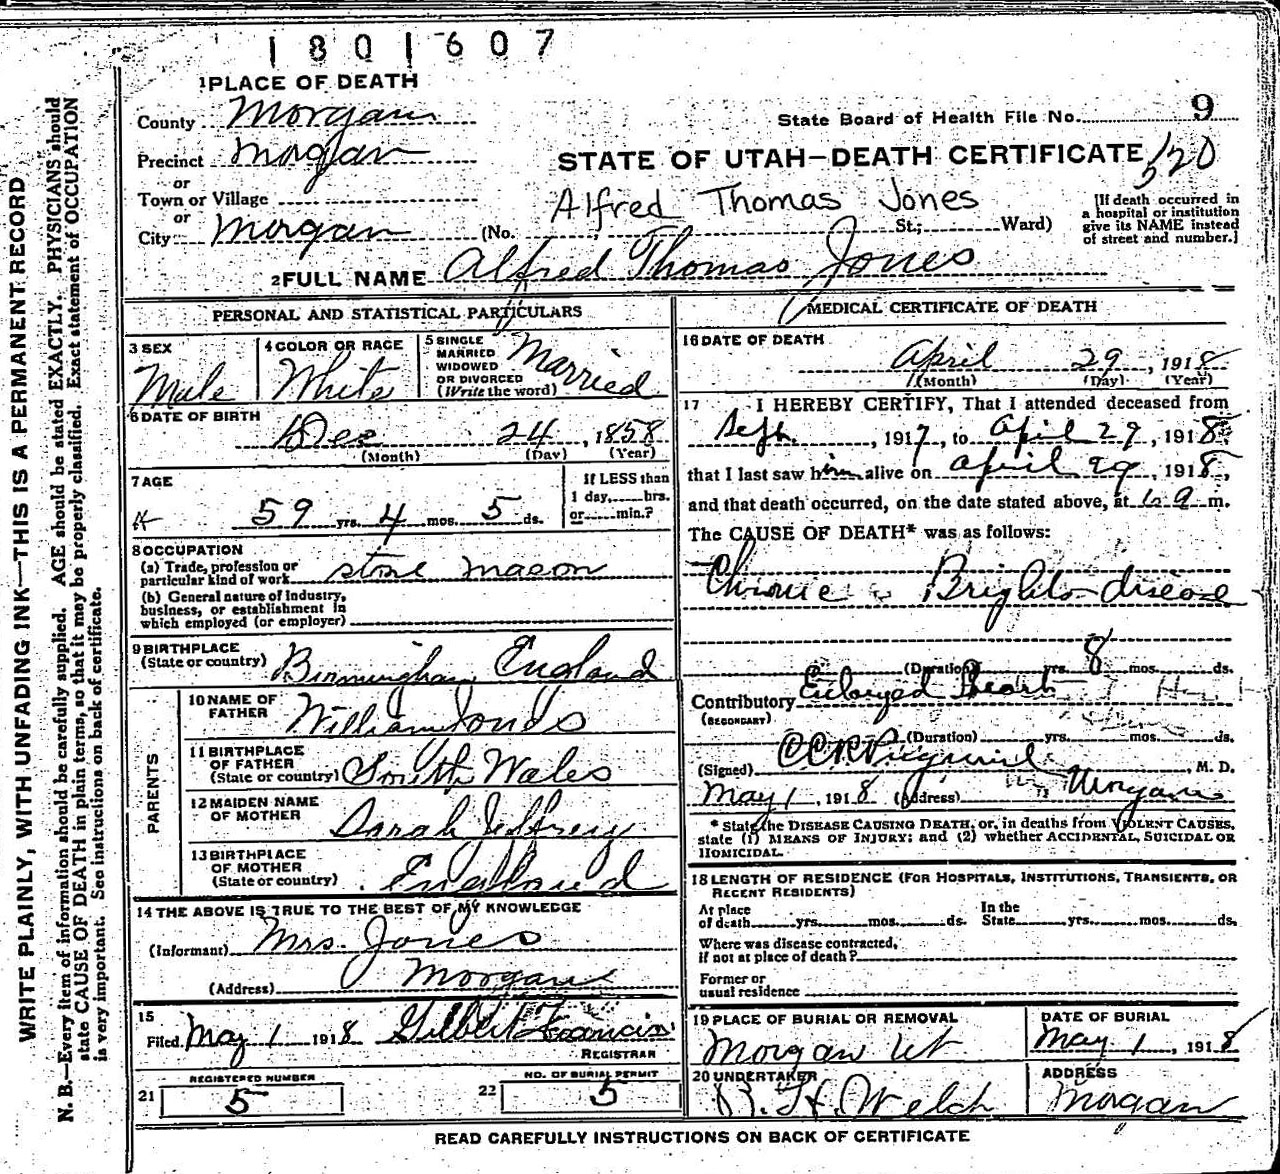 1801607
1 PLACE OF DEATH
County Morgan
State Board of Health File No. 9
Precinct Morgan
STATE OF UTAH—DEATH CERTIFICATE 120
or
Town or Village
Alfred Thomas Jones
or
City Morgan (No. St.; Ward)
[If death occurred in
a hospital or institution
give its NAME instead
of street and number.]
2 FULL NAME Alfred Thomas Jones
PERSONAL AND STATISTICAL PARTICULARS
3 SEX
Male
4 COLOR OR RACE
White
5 SINGLE
MARRIED
WIDOWED
OR DIVORCED
(Write the word)
Married
6 DATE OF BIRTH
Dec 24, 1858
(Month) (Day) (Year)
7 AGE
59 yrs. 4 mos. 5 ds.
If LESS than
1 day, hrs.
or min.?
8 OCCUPATION
(a) Trade, profession or
particular kind of work stone mason
(b) General nature of industry,
business, or establishment in
which employed (or employer)
9 BIRTHPLACE
(State or country) Birmingham England
PARENTS
10 NAME OF
FATHER William Jones
11 BIRTHPLACE
OF FATHER
(State or country) South Wales
12 MAIDEN NAME
OF MOTHER Sarah Jeffrey
13 BIRTHPLACE
OF MOTHER
(State or country) England
14 THE ABOVE IS TRUE TO THE BEST OF MY KNOWLEDGE
(Informant) Mrs. Jones
(Address) Morgan
15
Filed May 1 1918 Gilbert Francis
REGISTRAR
REGISTERED NUMBER
21 5
NO. OF BURIAL PERMIT
22 5
MEDICAL CERTIFICATE OF DEATH
16 DATE OF DEATH
April 29, 1918
(Month) (Day) (Year)
17 I HEREBY CERTIFY, That I attended deceased from
Sept., 1917, to April 29, 1918,
that I last saw him alive on April 29, 1918,
and that death occurred, on the date stated above, at 6 a m.
The CAUSE OF DEATH* was as follows:
Chronic Brights disease
(Duration) yrs. 8 mos. ds.
Contributory Enlarged Heart
(SECONDARY)
(Duration) yrs. mos. ds.
(Signed) , M. D.
May 1, 1918 (Address) Morgan
* State the DISEASE CAUSING DEATH, or, in deaths from VIOLENT CAUSES,
state (1) MEANS OF INJURY; and (2) whether ACCIDENTAL, SUICIDAL OR
HOMICIDAL.
18 LENGTH OF RESIDENCE (FOR HOSPITALS, INSTITUTIONS, TRANSIENTS, OR
RECENT RESIDENTS)
At place
of death yrs. mos. ds.
In the
State yrs. mos. ds.
Where was disease contracted,
if not at place of death?
Former or
usual residence
19 PLACE OF BURIAL OR REMOVAL
Morgan Ut
DATE OF BURIAL
May 1, 1918
20 UNDERTAKER
R. H. Welch
ADDRESS
Morgan
READ CAREFULLY INSTRUCTIONS ON BACK OF CERTIFICATE
WRITE PLAINLY, WITH UNFADING INK—THIS IS A PERMANENT RECORD
N. B.—Every item of information should be carefully supplied. AGE should be stated EXACTLY. PHYSICIANS should
state CAUSE OF DEATH in plain terms, so that it may be properly classified. Exact statement of OCCUPATION
is very important. See instructions on back of certificate.